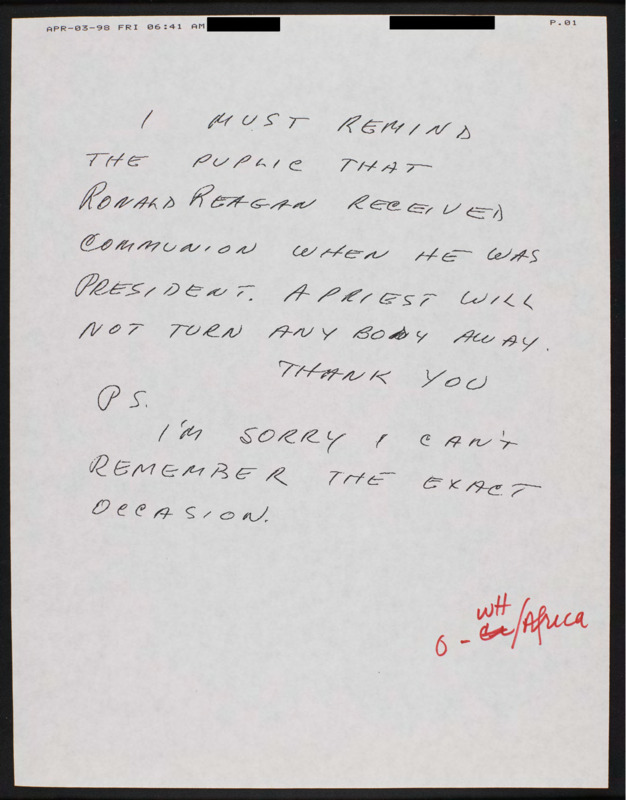 APR-03-98 FRI 06:41 AM
P.01
I MUST REMIND
THE PUPLIC THAT
RONALD REAGAN RECEIVED
COMMUNION WHEN HE WAS
PRESIDENT. A PRIEST WILL
NOT TURN ANY BODY AWAY.
THANK YOU
PS.
I'M SORRY I CAN'T
REMEMBER THE EXACT
OCCASION.
WH
O - /Africa